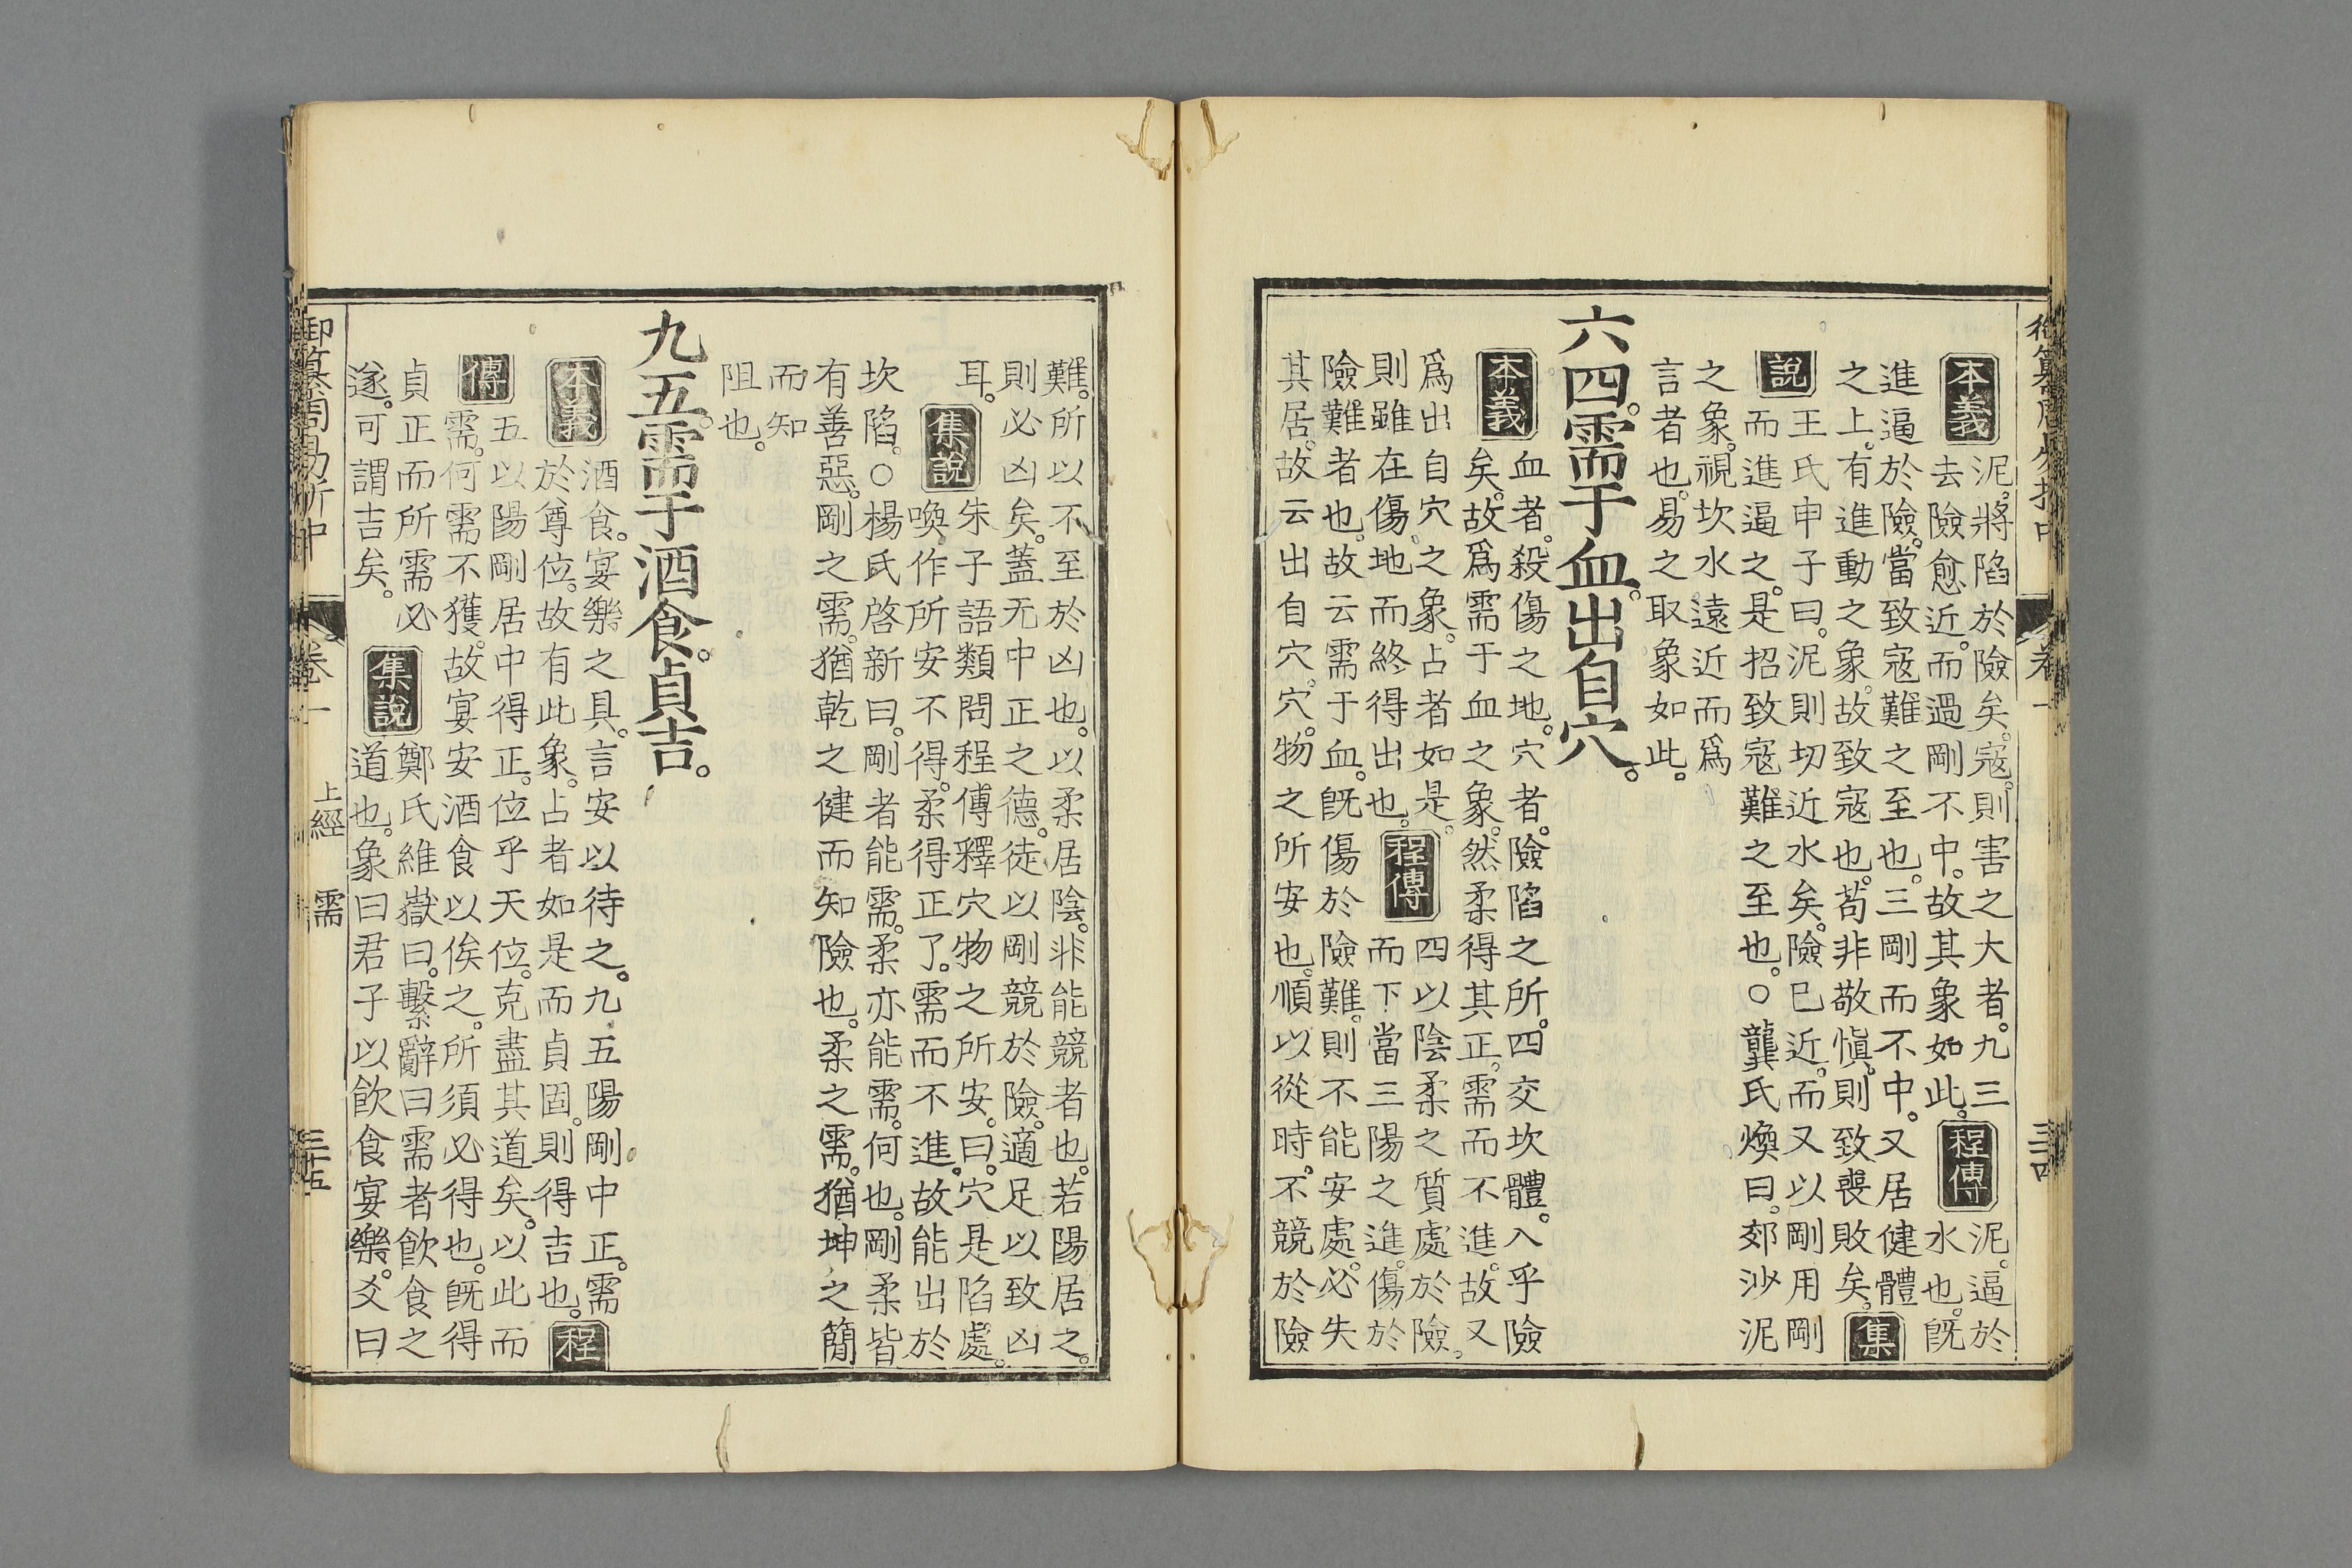 本義 泥。將陷於險矣。寇。則害之大者。九三
去險愈近。而過剛不中。故其象如此。
程傳 泥。逼於
水也。旣
進逼於險。當致寇難之至也。三剛而不中。又居健體
之上。有進動之象。故致寇也。苟非敬愼。則致喪敗矣。
集
說
王氏申子曰。泥則切近水矣。險已近。而又以剛用剛
而進逼之。是招致寇難之至也。○龔氏煥曰。郊沙泥
之象。視坎水遠近而爲
言者也。易之取象如此。
六四。需于血。出自穴。
本義 血者。殺傷之地。穴者。險陷之所。四交坎體。入乎險
矣。故爲需于血之象。然柔得其正。需而不進。故又
爲出自穴之象。占者如是。
則雖在傷地而終得出也。
程傳 四以陰柔之質處於險。
而下當三陽之進。傷於
險難者也。故云需于血。旣傷於險難。則不能安處。必失
其居。故云出自穴。穴。物之所安也。順以從時。不競於險
難。所以不至於凶也。以柔居陰。非能競者也。若陽居之。
則必凶矣。蓋无中正之德。徒以剛競於險。適足以致凶
耳。
集說 朱子語類問程傳釋穴物之所安。曰。穴是陷處。
喚作所安不得。柔得正了。需而不進。故能出於
坎陷。○楊氏啓新曰。剛者能需。柔亦能需。何也。剛柔皆
有善惡。剛之需。猶乾之健而知險也。柔之需。猶坤之簡
而知
阻也。
九五。需于酒食。貞吉。
本義 酒食。宴樂之具。言安以待之。九五陽剛中正。需
於尊位。故有此象。占者如是而貞固。則得吉也。
程
傳
五以陽剛居中得正。位乎天位。克盡其道矣。以此而
需。何需不獲。故宴安酒食以俟之。所須必得也。旣得
貞正而所需必
遂。可謂吉矣。
集說 鄭氏維嶽曰。繫辭曰需者飲食之
道也。象曰君子以飲食宴樂。爻曰
御纂周易折中
卷一
上經
需
三十五